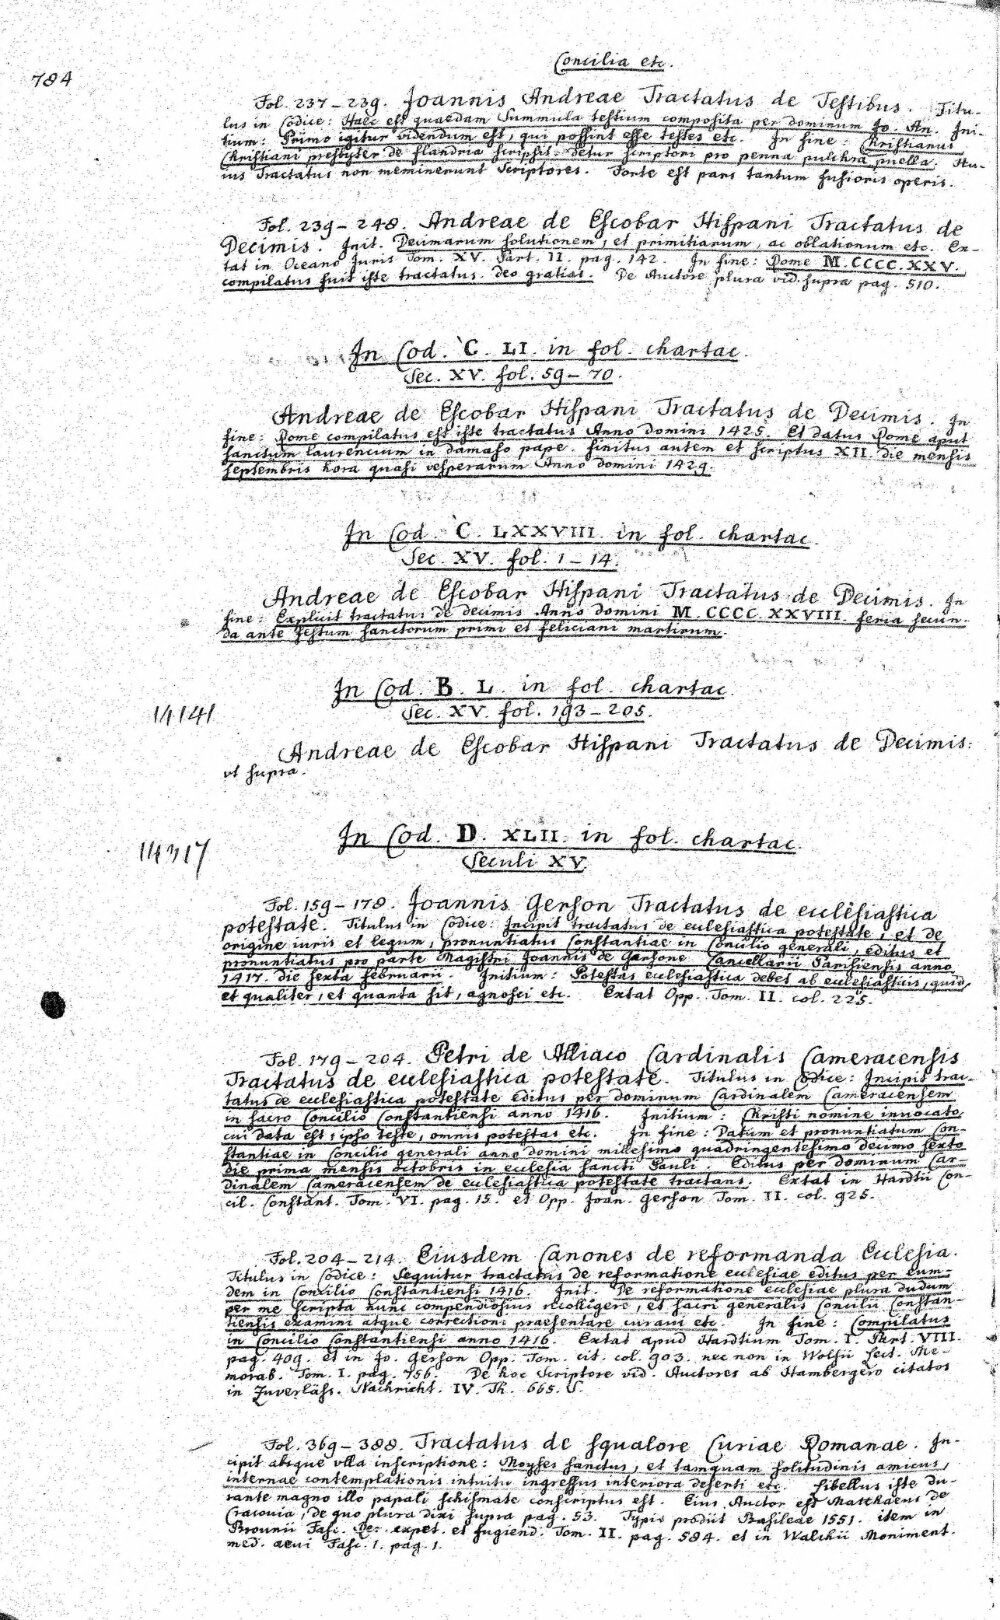 784
Concilia etc.
Fol. 237–239. Joannis Andreae Tractatus de Testibus. Titu-
lus in Codice: Haec est quaedam Summula testium composita per dominum Jo. An. Ini-
tium: Primo igitur videndum est, qui possint esse testes etc. In fine: Christianus
Christiani presbyter de flandria scripsit. detur scriptori pro penna pulchra puella. Hu-
ius Tractatus non meminerunt Scriptores. Forte est pars tantum fusioris operis.
Fol. 239–248. Andreae de Escobar Hispani Tractatus de
Decimis. Init. Decimarum solutionem, et primitiarum, ac oblationum etc. Ex-
tat in Oceano Juris Tom. XV. Part. II. pag. 142. In fine: Rome M.CCCC.XXV.
compilatus fuit iste tractatus. deo gratias. De Auctore plura vid. supra pag. 510.
In Cod. C. LI. in fol. chartac.
Sec. XV. fol. 59–70.
Andreae de Escobar Hispani Tractatus de Decimis. In
fine: Rome compilatus est iste tractatus Anno domini 1425. Et datus Rome aput
sanctum laurencium in damaso pape. finitus autem et scriptus XII. die mensis
septembris hora quasi vesperarum Anno domini 1429.
In Cod. C. LXXVIII. in fol. chartac.
Sec. XV. fol. 1–14.
Andreae de Escobar Hispani Tractatus de Decimis. In
fine: Explicit tractatus de decimis Anno domini M.CCCC.XXVIII. feria secun-
da ante festum sanctorum primi et feliciani martirum.
In Cod. B. L. in fol. chartac.
Sec. XV. fol. 193–205.
14141
Andreae de Escobar Hispani Tractatus de Decimis.
vt supra.
In Cod. D. XLII. in fol. chartac.
Seculi XV.
14317
Fol. 159–178. Joannis Gerson Tractatus de ecclesiastica
potestate. Titulus in Codice: Incipit tractatus de ecclesiastica potestate, et de
origine iuris et legum, pronuntiatus Constantiae in Concilio generali, editus et
pronuntiatus pro parte Magistri Joannis de Gersone Cancellarii Parisiensis anno
1417. die sexta februarii. Initium: Potestas ecclesiastica debet ab ecclesiasticis, quid,
et qualiter, et quanta sit, agnosci etc. Extat Opp. Tom. II. col. 225.
Fol. 179–204. Petri de Alliaco Cardinalis Cameracensis
Tractatus de ecclesiastica potestate. Titulus in Codice: Incipit trac-
tatus de ecclesiastica potestate editus per dominum Cardinalem Cameracensem
in sacro Concilio Constantiensi anno 1416. Initium: Christi nomine invocato,
cui data est, ipso teste, omnis potestas etc. In fine: Datum et pronuntiatum Con-
stantiae in Concilio generali anno domini millesimo quadringentesimo decimo sexto
die prima mensis octobris in ecclesia sancti Pauli. Editus per dominum Car-
dinalem Cameracensem de ecclesiastica potestate tractans. Extat in Hardtii Con-
cil. Constant. Tom. VI. pag. 15. et Opp. Joan. Gerson Tom. II. col. 925.
Fol. 204–214. Eiusdem Canones de reformanda Ecclesia.
Titulus in Codice: Sequitur tractatus de reformatione ecclesiae editus per eun-
dem in Concilio Constantiensi 1416. Init. De reformatione ecclesiae plura dudum
per me scripta nunc compendiosius recolligere, et sacri generalis Concilii Constan-
tiensis examini atque correctioni praesentare curavi etc. In fine: Compilatus
in Concilio Constantiensi anno 1416. Extat apud Hardtium Tom. I. Part. VIII.
pag. 409. et in Jo. Gerson Opp. Tom. cit. col. 903. nec non in Wolfii Lect. Me-
morab. Tom. I. pag. 756. De hoc Scriptore vid. Auctores ab Hambergero citatos
in Zuverläss. Nachricht. IV. Th. 665. S.
Fol. 369–388. Tractatus de squalore Curiae Romanae. In-
cipit absque vlla inscriptione: Moyses sanctus, et tamquam solitudinis amicus,
internae contemplationis intuitu ingressus interiora deserti etc. Libellus iste du-
rante magno illo papali schismate conscriptus est. Eius Auctor est Matthaeus de
Cracovia, de quo plura dixi supra pag. 53. Typis prodiit Basileae 1551. item in
Brownii Fasc. Rer. expet. et fugiend. Tom. II. pag. 584. et in Walchii Moniment.
med. aevi Fasc. 1. pag. 1.